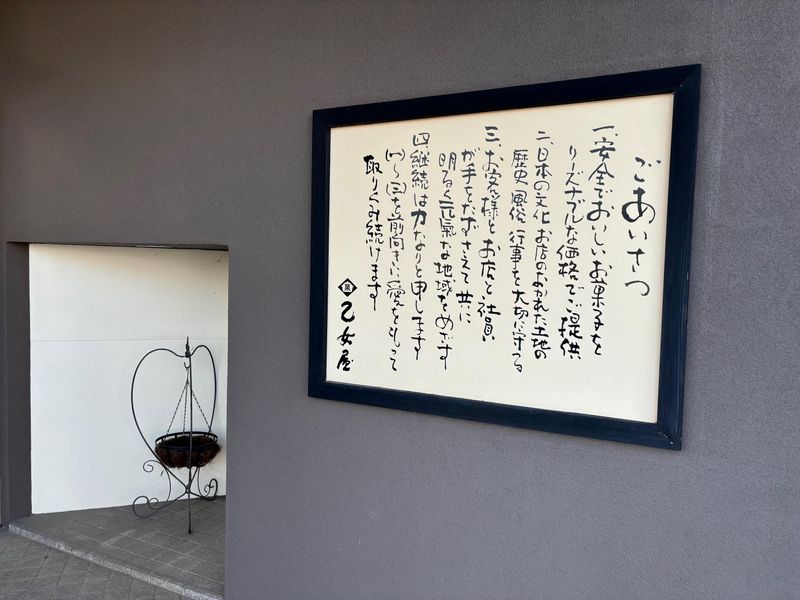 ごあいさつ
一、安全でおいしいお菓子を
リーズナブルな価格でご提供
二、日本の文化 お店のおかれた土地の
歴史 風俗 行事を大切に守る
三、お客様と お店と 社員
が手をたずさえて 共に
明るく元氣な地域をめざす
四、継続は力なりと申します
(一)〜(三)を前向きに愛をもって
取りくみ続けます
菓 乙女屋